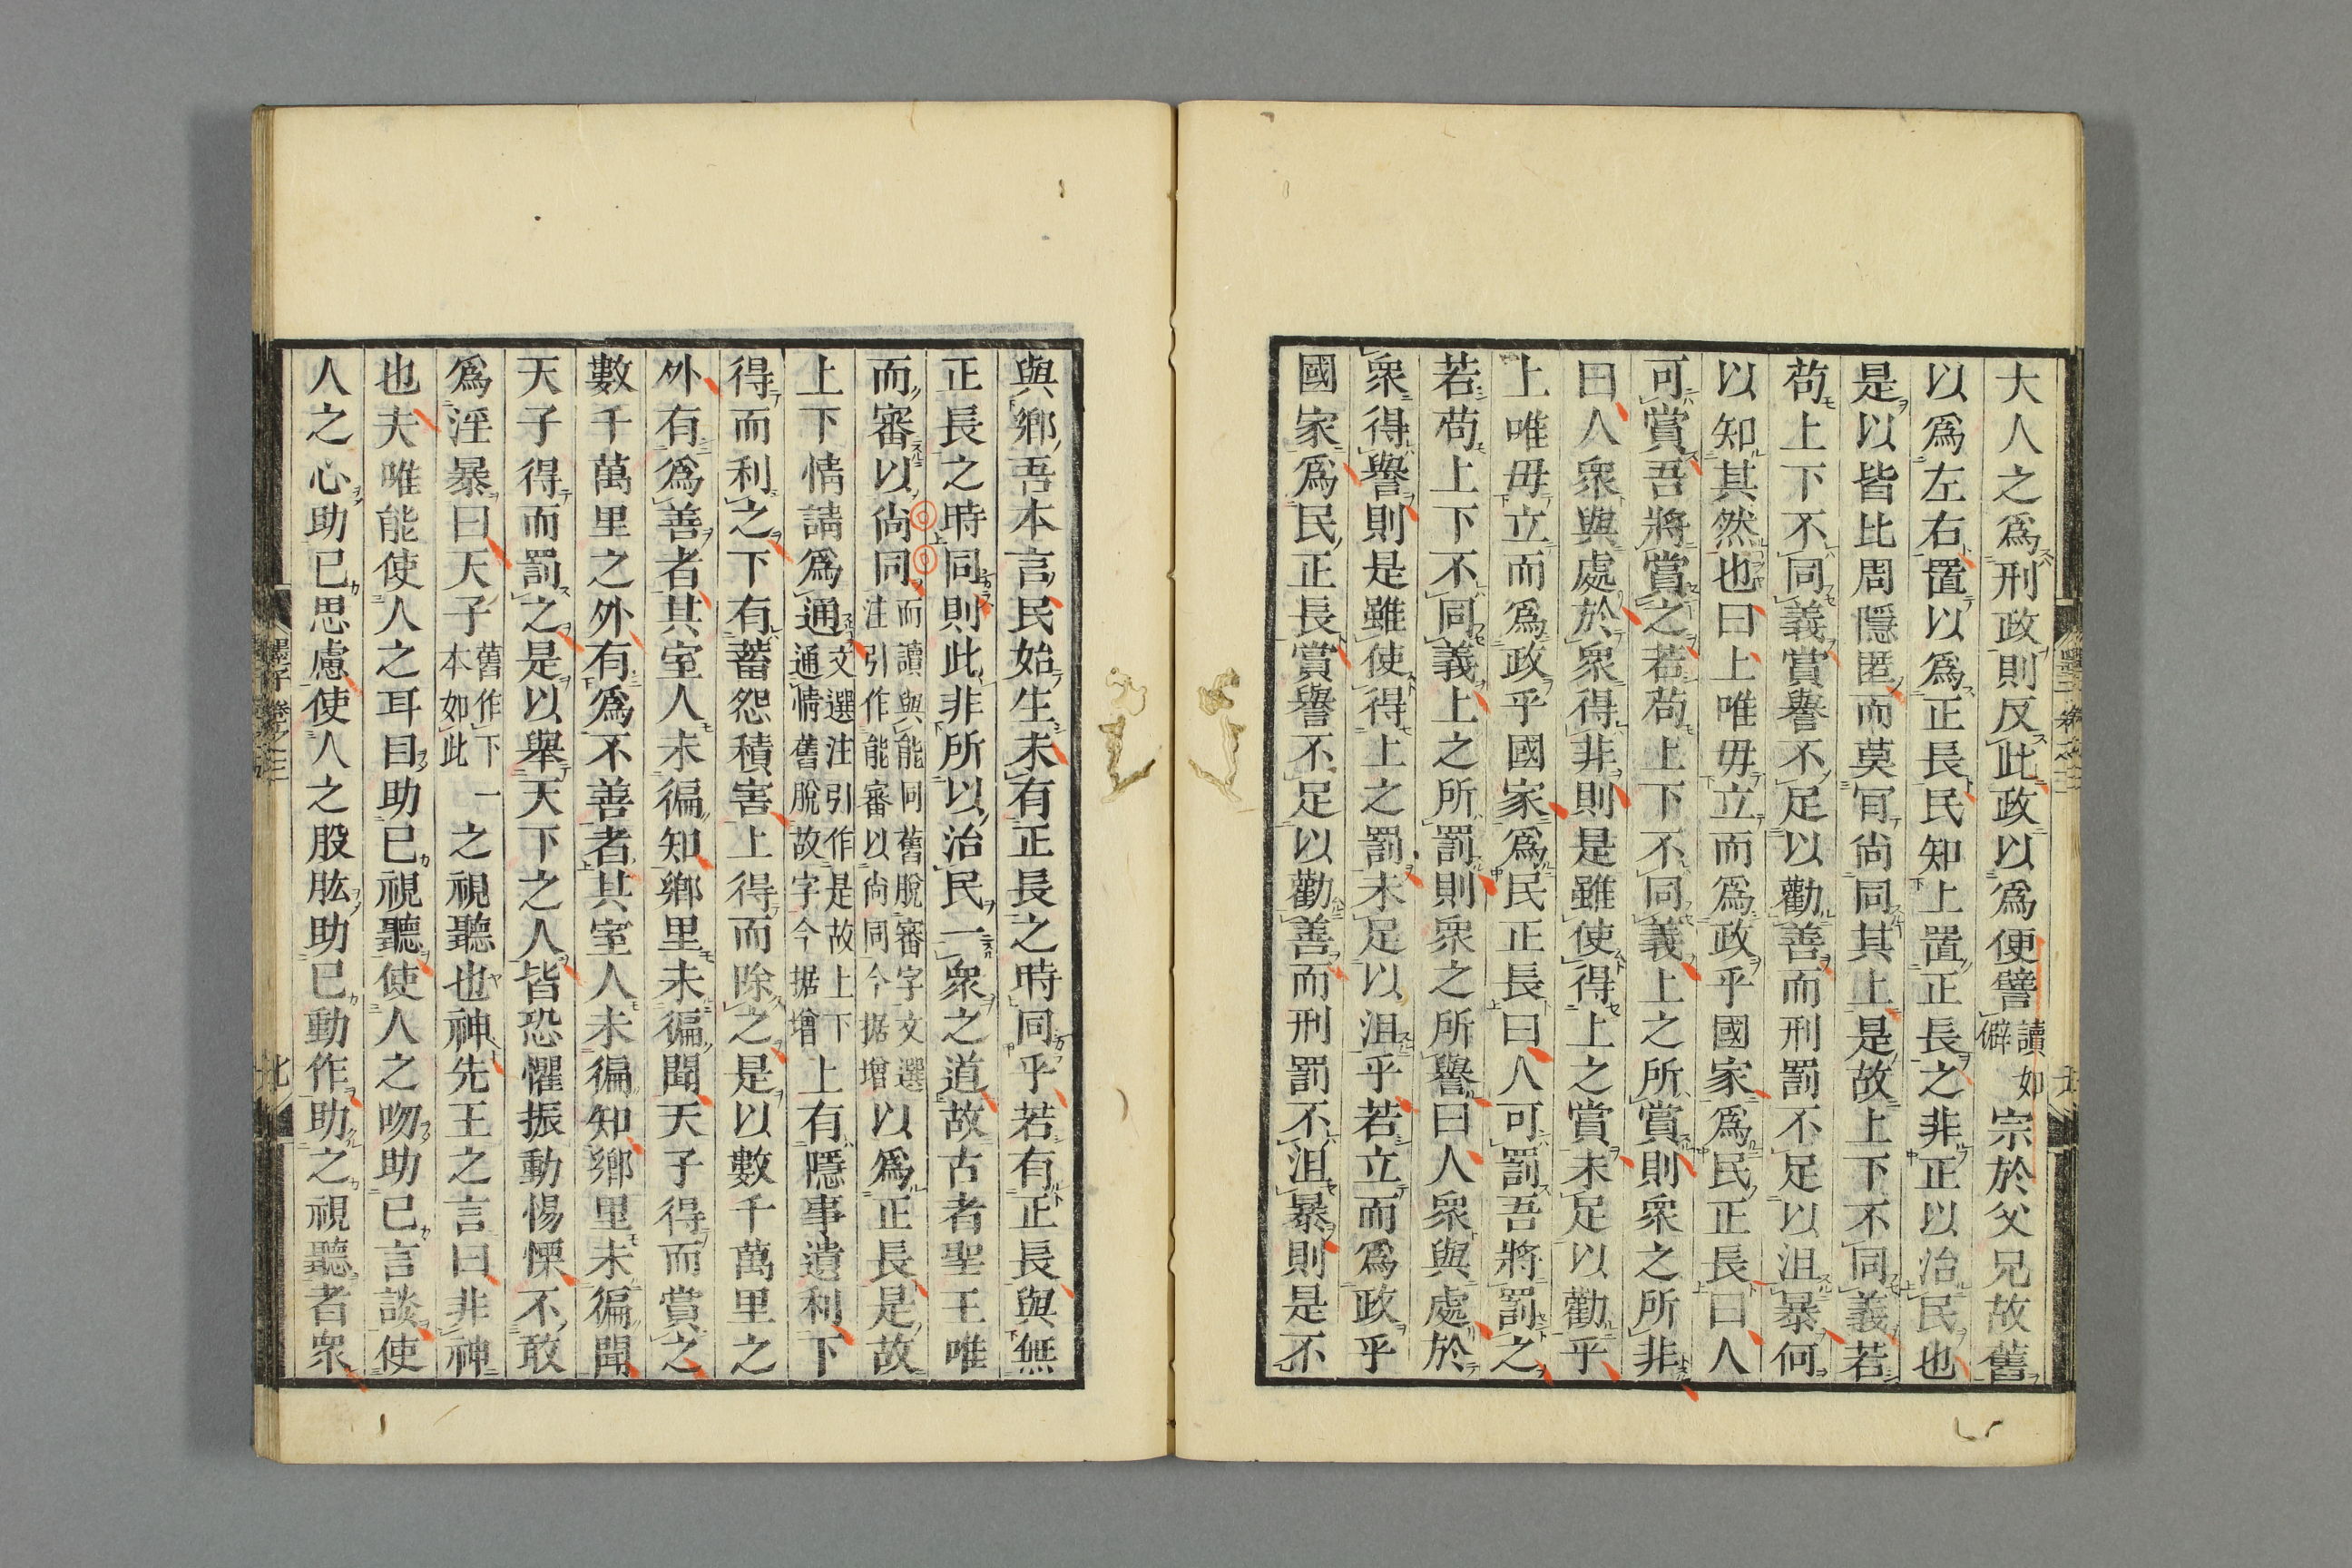 大人之爲刑政則反此政以爲便譬讀如僻宗於父兄故舊
以爲左右置以爲正長民知上置正長之非正以治民也
是以皆比周隱匿而莫肎尙同其上是故上下不同義若
苟上下不同義賞譽不足以勸善而刑罰不足以沮暴何
以知其然也曰上唯毋立而爲政乎國家爲民正長曰人
可賞吾將賞之若苟上下不同義上之所賞則衆之所非
曰人衆與處於衆得非則是雖使得上之賞未足以勸乎
上唯毋立而爲政乎國家爲民正長曰人可罰吾將罰之
若苟上下不同義上之所罰則衆之所譽曰人衆與處於
衆得譽則是雖使得上之罰未足以沮乎若立而爲政乎
國家爲民正長賞譽不足以勸善而刑罰不沮暴則是不
與鄉吾本言民始生未有正長之時同乎若有正長與無
正長之時同則此非所以治民一衆之道故古者聖王唯
而審以尙同而讀與能同舊脫審字文選注引作能審以尙同今据增以爲正長是故
上下情請爲通文選注引作是故上下通情舊脫故字今据增上有隱事遺利下
得而利之下有蓄怨積害上得而除之是以數千萬里之
外有爲善者其室人未徧知鄉里未徧聞天子得而賞之
數千萬里之外有爲不善者其室人未徧知鄉里未徧聞
天子得而罰之是以舉天下之人皆恐懼振動惕慄不敢
爲淫暴曰天子舊作下一本如此之視聽也神先王之言曰非神
也夫唯能使人之耳目助己視聽使人之吻助己言談使
人之心助己思慮使人之股肱助己動作助之視聽者衆
墨子卷之三